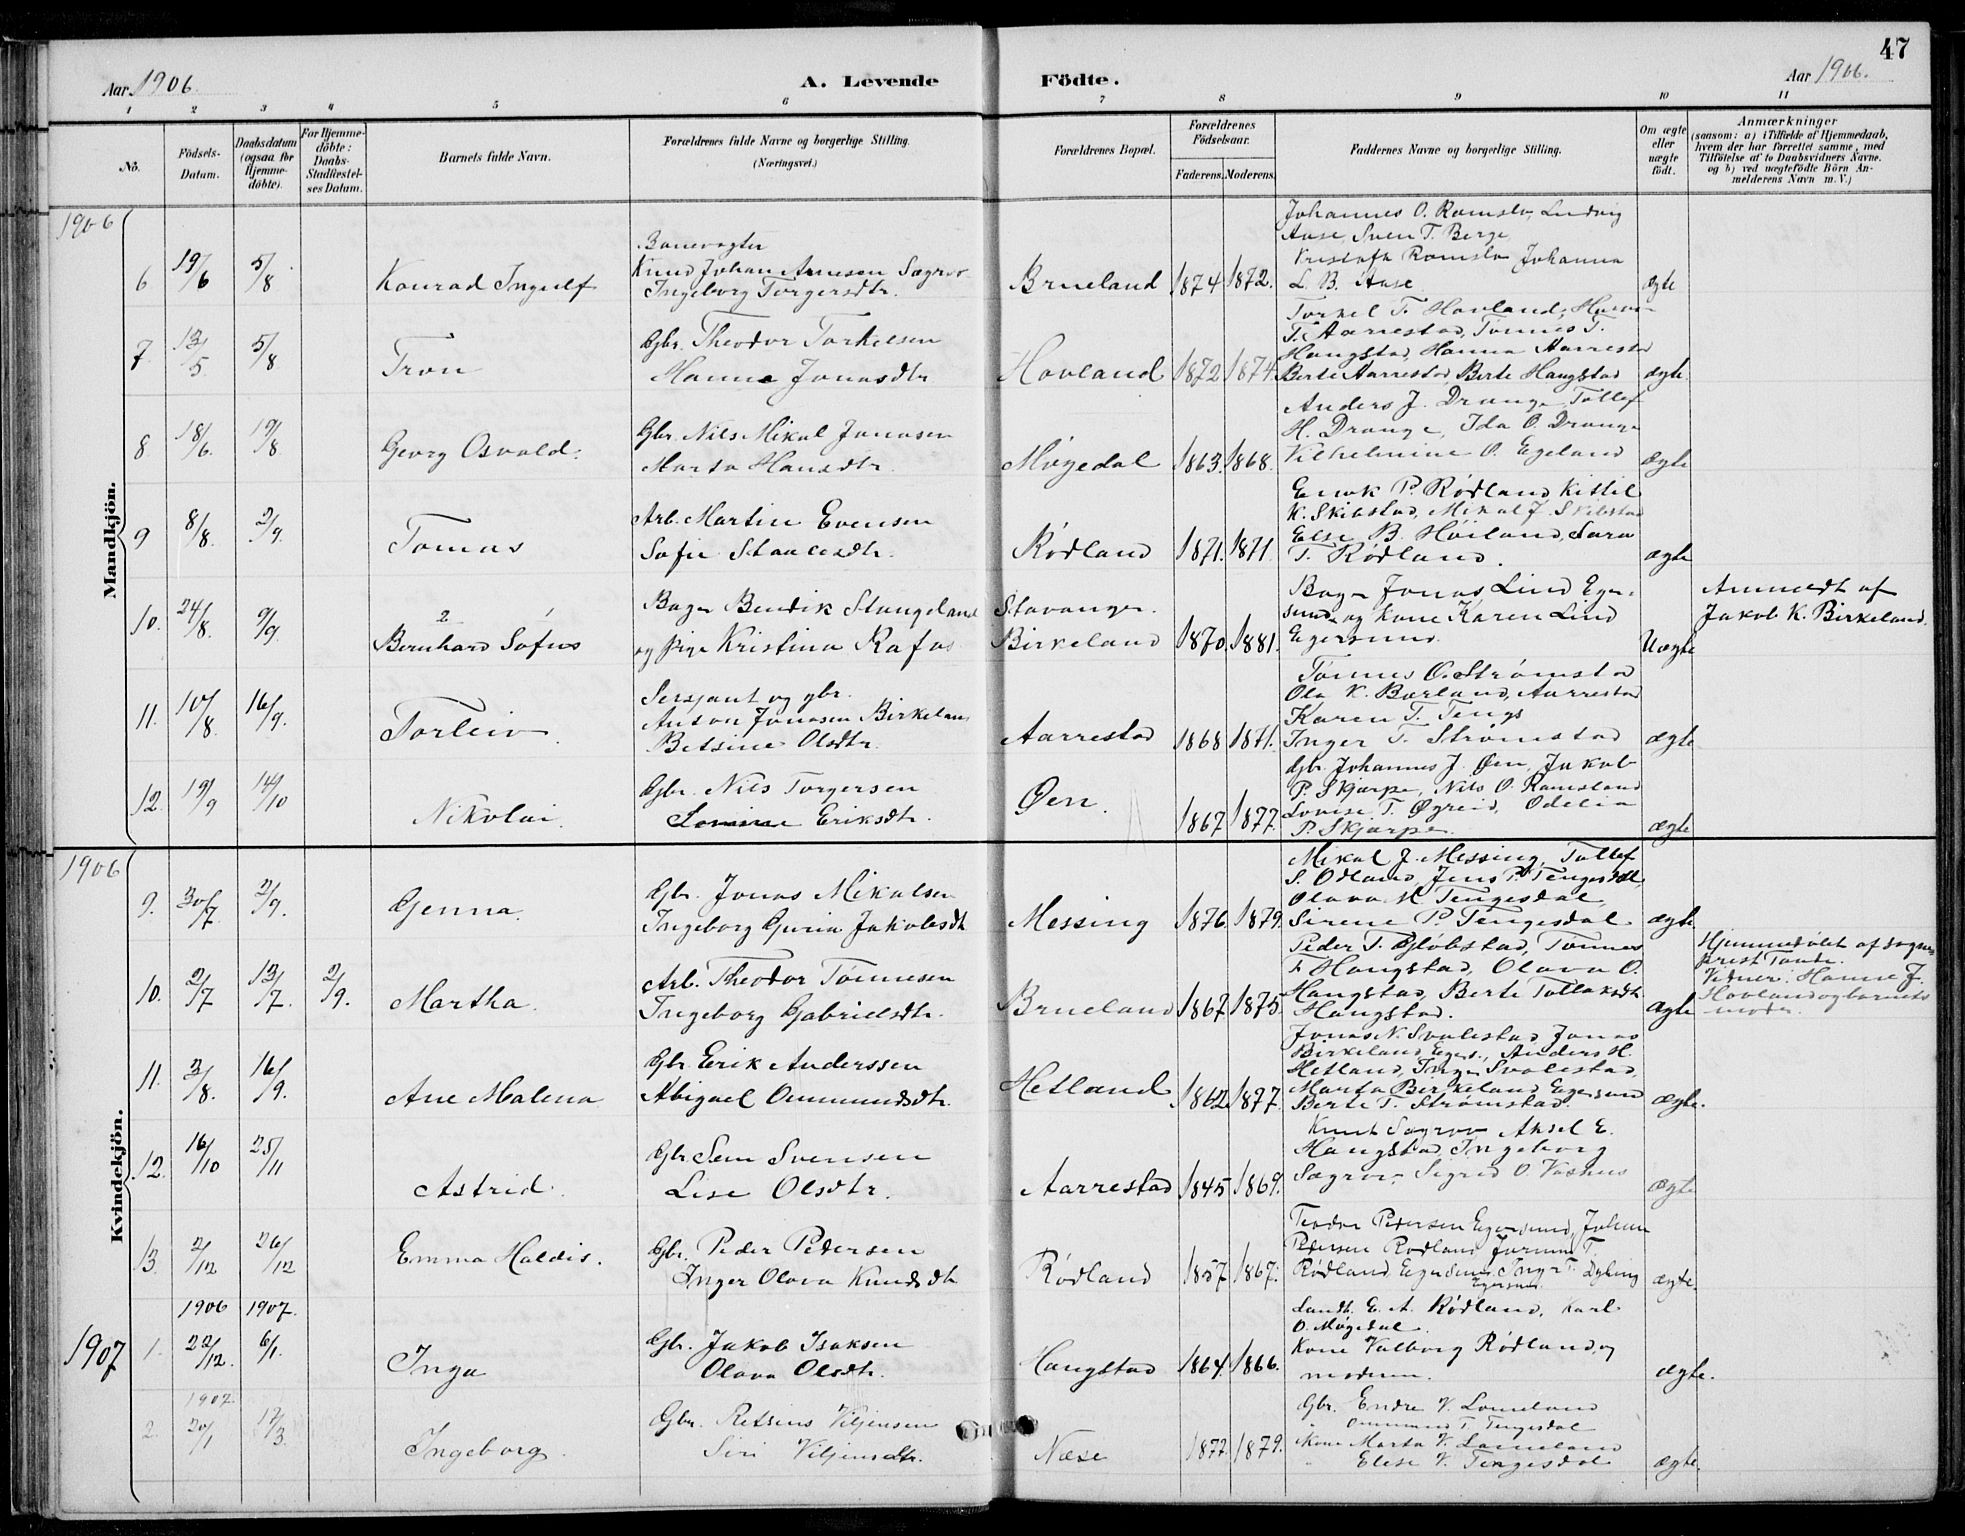 47
Aar 1906.
A. Levende
Födte.
Aar 1906.
1 2 3 4 5 6 7 8 9 10 11
No.
Födsels-
Datum.
Daabsdatum
(ogsaa for
Hjemme-
döbte).
For Hjemme-
döbte:
Daabs-
Stadfæstel-
ses Datum.
Barnets fulde Navn.
Forældrenes fulde Navne og borgerlige Stilling.
(Næringsvei.)
Forældrenes Bopæl.
Forældrenes
Födselsaar.
Faderens. Moderens.
Faddernes Navne og borgerlige Stilling.
Om ægte
eller
uægte
født.
Anmærkninger
(saasom: a) i Tilfælde af Hjemmedaab,
hvem der har forrettet samme, med
Tilföielse af to Daabsvidners Navne.
og b) ved uægtefödte Börn An-
melderens Navn m. V.)
Mandkjön.
1906
6 19/6 5/8
Konrad Ingulf
Banevogter
Knud Johan Arnesen Sægrov
Ingeborg Torgersdtr.
Brueland 1874 1872.
Johannes O. Ramslo, Ludvig
Aase, Sven T. Berge,
Kristofa Ramslo Johanna
L. B. Aase
ægte
7 13/5 5/8
Tron
Gbr. Theodor Torkelsen
Hanne Jonasdtr
Hovland 1872 1874.
Torkel T. Hovland,
T. Aarrestad, Tønnes T.
Haugstad, Hanna Aarrestad
Berte Aarrestad, Berte Haugstad
ægte.
8 18/6. 19/8
Georg Osvald.
Gbr. Nils Mikal Jonasen
Marta Hansdtr.
Møgedal 1863. 1868.
Anders J. Drange, Tollef
H. Drange, Ida O. Drange
Vilhelmine O. Egeland
ægte
9 8/8. 2/9.
Tomas
Arb. Martin Evensen
Sofie
Rødland 1871. 1871.
P. Rødland, Kittil
K. Skibstad, Mikal J. Skibstad
Else B. Høiland, Sara
T. Rødland.
ægte
10. 24/8. 9/9.
2
Bernhard Sofus
Bager Bendik Stangeland
og pige Kristina Rafos
Stavanger.
Birkeland 1870. 1881.
Bager Jonas Lind Eger-
sund og Kone Karen Lind
Egersund.
Uægte
Anmeldt af
Jakob K. Birkeland.
11. 10/8 16/9.
Torleiv.
Sersjant og gbr.
Anton Jonasen Birkeland
Betsine Olsdtr.
Aarrestad 1868 1871.
Tønnes O. Strømstad
Ola K. Børland, Aarrestad
Karen T. Tengs
Inger T. Strømstad
ægte
12. 19/9 14/10
Nikolai.
Gbr. Nils Torgersen
Eriksdtr.
Øen. 1867 1877.
Gbr. Johannes J. Øen, Jakob
P. Skjærpe, Nils O. Ramsland
Lovise T. Øgreid, Odelia
P. Skjærpe.
ægte
Kvindekjön.
1906
9. 30/7 2/9.
Genna.
Gbr. Jonas Mikalsen
Ingeborg Guria Jakobsdtr
Messing 1876 1879.
Mikal J. Messing, Tollef
S. Odland, Jens P. Tengesdal
Olava M Tengesdal
Sirene P. Tengesdal
ægte
10. 2/7 13/7. 2/9.
Martha.
Arb. Theodor Tönnesen
Ingeborg Gabrielsdtr.
Brueland 1867 1875.
Peder T. Gløbstad, Tönnes
T. Haugstad, Olava O.
Haugstad, Berte Tollaksdtr.
Haugstad.
ægte
Hjemmedøbt af sogne-
prest Tande.
Vidner: Hanne J.
Hovland og barnets
moder.
11. 3/8. 16/9.
Ane Malena
Gbr. Erik Anderssen
Abigael Ommundsdtr.
Hetland 1862 1877.
Jonas N. Svalestad Jonas
Birkeland, Egers., Anders H.
Hetland, Inger Svalestad,
Marta Birkeland Egersund
Berte T. Strømstad.
ægte.
12. 16/10 25/11
Astrid.
Gbr. Sem Svensen
Lise Olsdtr.
Aarrestad 1845 1869.
Knut Sægrov Aksel E.
Haugstad, Ingeborg
Sægrov, Sigrid O. Vashus
ægte
13. 2/12 26/12
Emma Haldis.
Gbr. Peder Petersen
Inger Olava Knudsdtr
Rødland 1857 1867.
Teodor Petersen Egersund, Johan
Petersen Rødland T.
Rødland, Egersund, Inger T. Dybing
Egersund
ægte.
1906 1907.
1907
1. 22/12. 6/1.
Inga
Gbr. Jakob Isaksen
Olava Olsdtr.
Haugstad 1864. 1866.
Landh. E. A. Rødland, Karl
O. Møgedal.
Kone Valborg Rødland, og
moderen.
ægte.
1907.
2. 20/1 17/3.
Ingeborg.
Gbr. Retsius Viljemsen
Siri Viljemsdtr.
Næse 1877. 1879.
Gbr. Endre V. Lomeland
Ommund T. Tengesdal
Kone Marta V. Lomeland
" Elise V. Tengesdal
ægte.